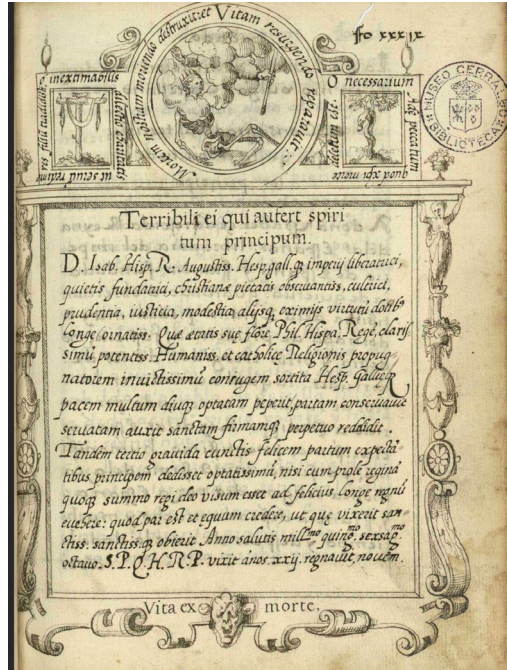 fo xxxix
Mortem nostram moriendo destruxit: et Vitam resurgendo reparavit
o inextimabilis
dilectio charitatis
ut servū redim
eres filiū tradidisti
O necessarium
Ade peccatum
quod xpi morte
deletum est
MUSEO CERRALBO
BIBLIOTECA
Terribili ei qui aufert spiri
tum principum.
D. Isab. Hisp. R. Augustiss. Hesp. gall. q̢ imperij liberatrici,
quietis fundatrici, christianæ pietatis obseruantiss. cultrici,
prudentia, iusticia, modestia alijsq̢ eximijs virtutū dotibꝰ
longe ornatiss. Quæ ætatis suę flore Phil. Hispa. Rege, claris
simū potentiss. Humaniss. et catholice Religionis propug-
natorem inuictissimū coniugem sortita Hesp. Gallięq̢
pacem multum diuq̢ optatam peperit, partam conseruauit
seruatam auxit sanctam firmamq̢ perpetuo reddidit.
Tandem tertio grauida cunctis felicem partum expectā
tibus, principem dedisset optatissimū, nisi cum prole regina
quoq̢ summo regi deo visum esset ad felicius longe regnū
euehere: quod par est et equum credere, ut quę vixerit san-
ctiss. sanctiss. q̢ obierit Anno salutis mill.mo quing. sexsag.mo
octauo. S. P. Q. H. R. P. vixit ános. xxij. regnauit, nouem.
Vita ex morte.